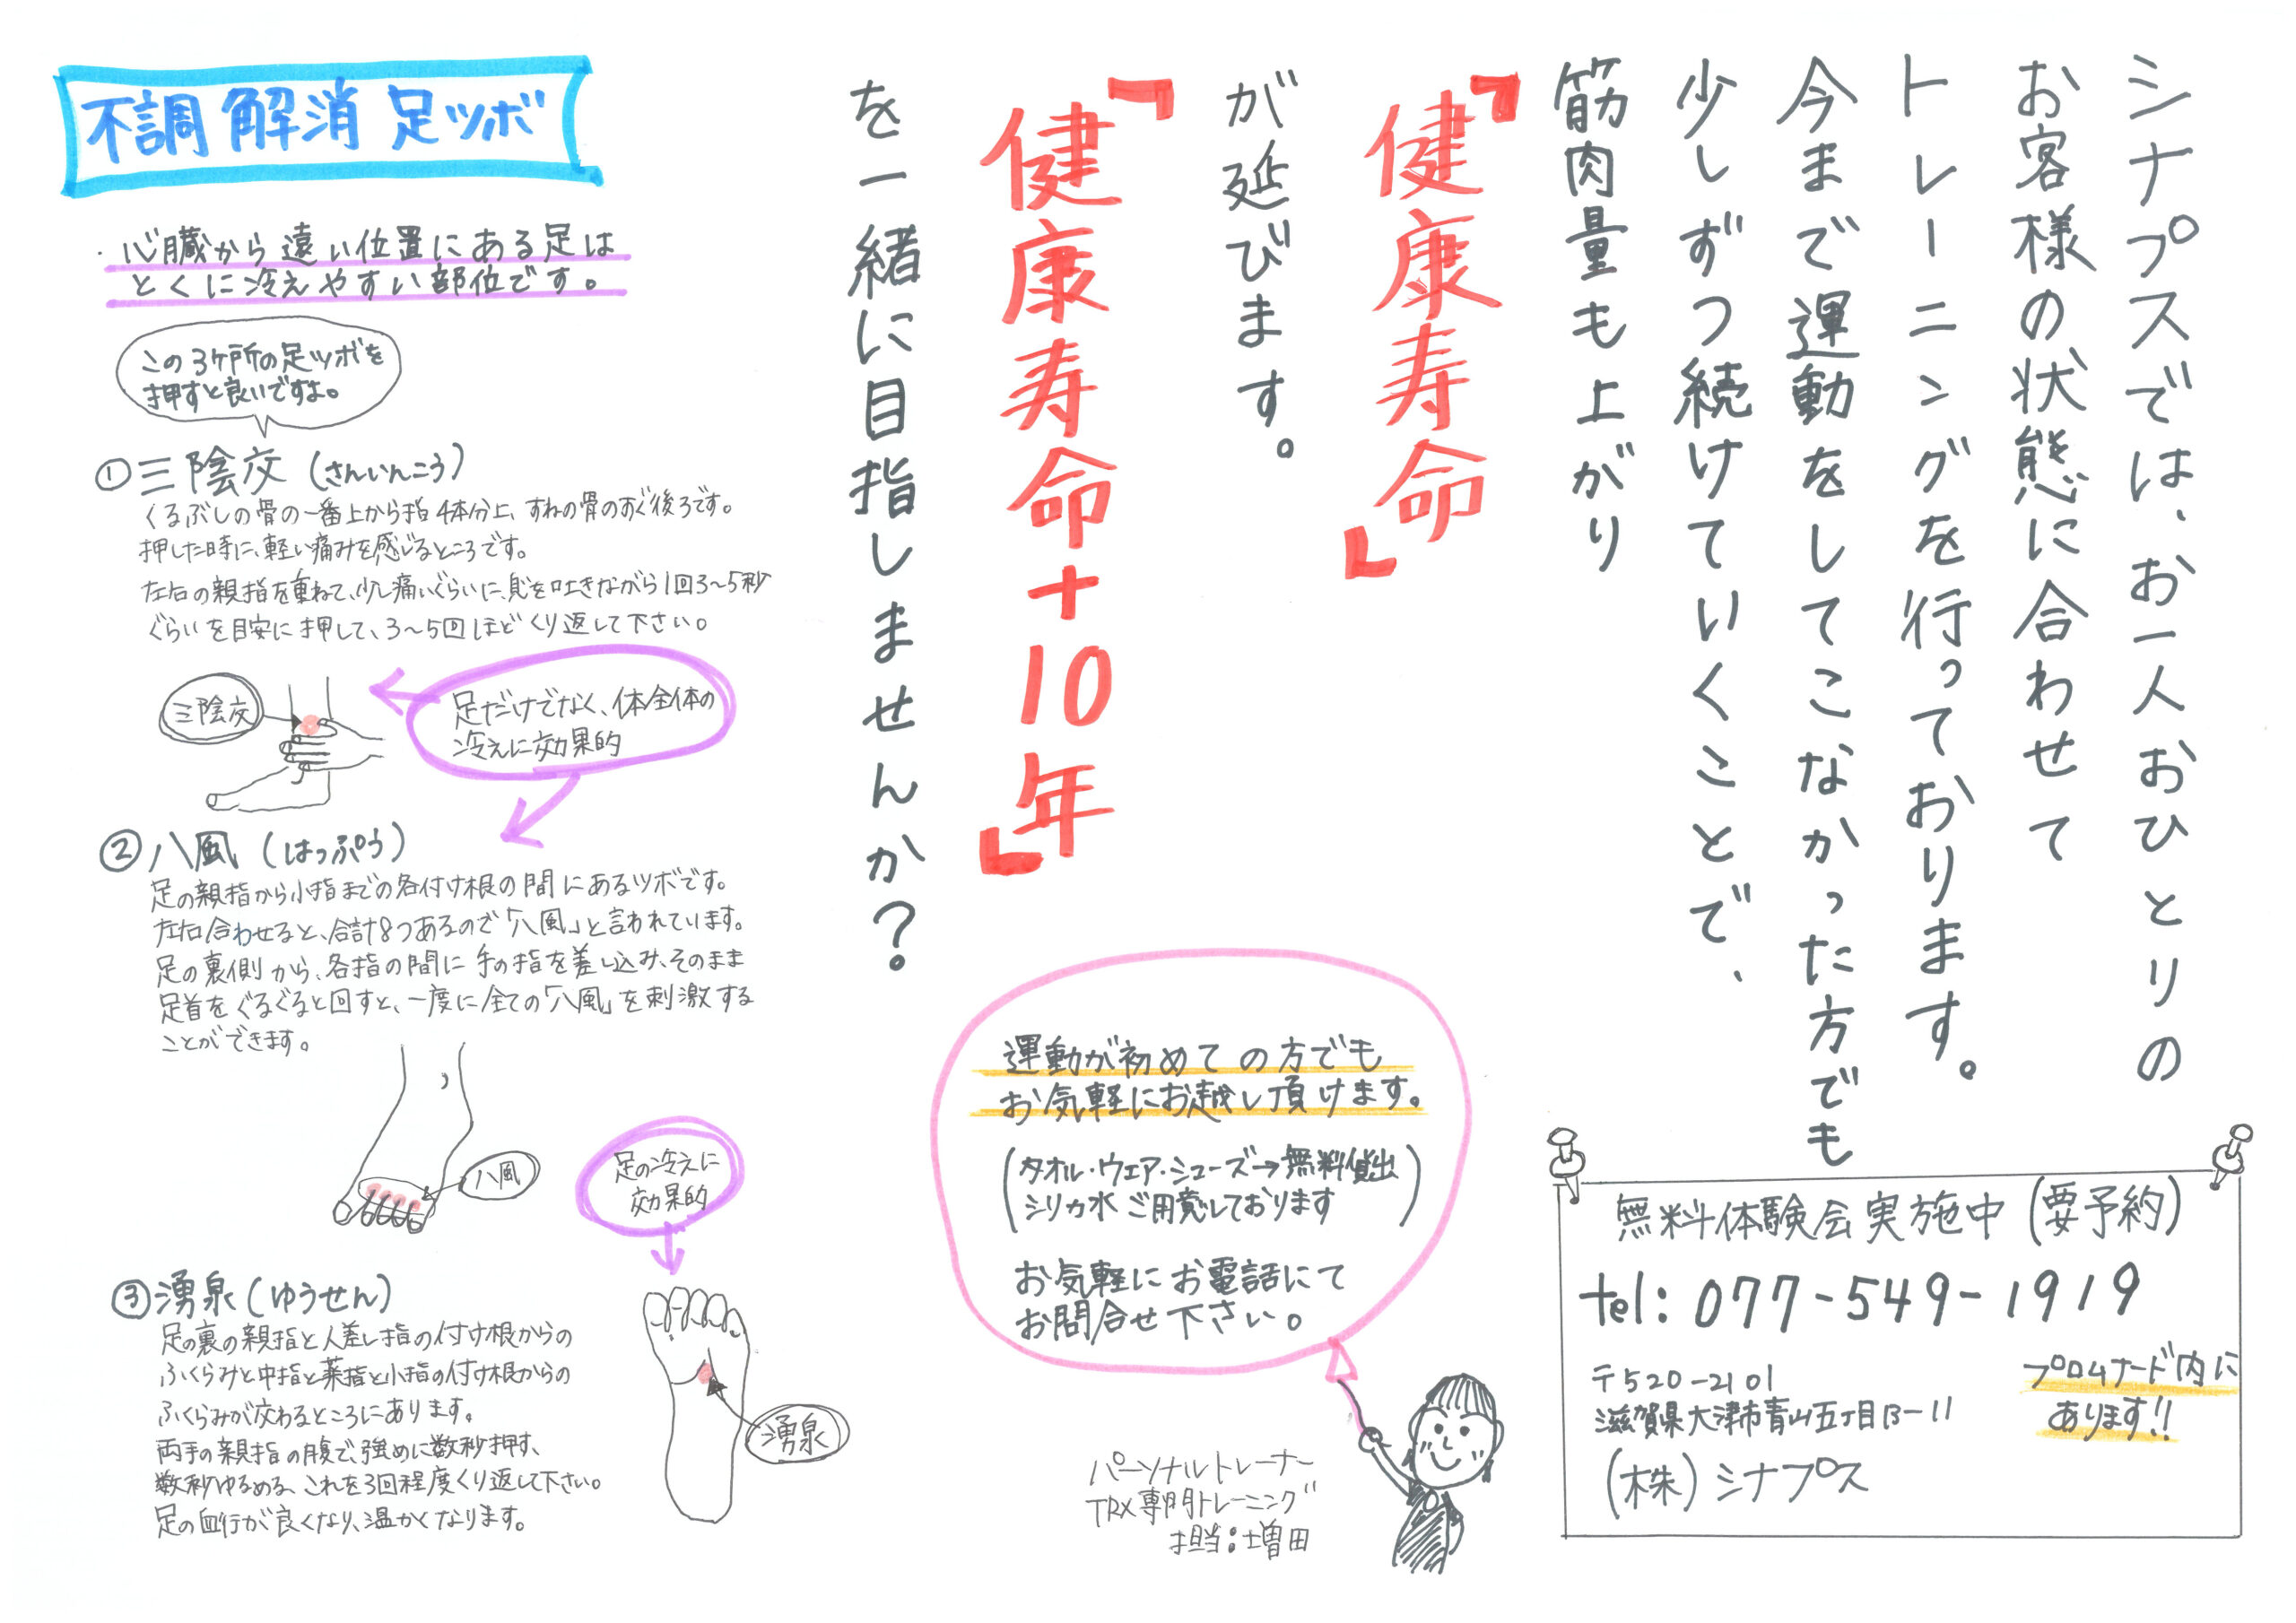 シナプスでは、お一人おひとりの
お客様の状態に合わせて
トレーニングを行っております。
今まで運動をしてこなかった方でも
少しずつ続けていくことで、
筋肉量も上がり
『健康寿命』
が延びます。
『健康寿命+10年』
を一緒に目指しませんか?
不調解消足ツボ
・心臓から遠い位置にある足は
とくに冷えやすい部位です。
この3ヶ所の足ツボを
押すと良いですよ。
①三陰交(さんいんこう)
くるぶしの骨の一番上から指4本分上、すねの骨のすぐ後ろです。
押した時に、軽い痛みを感じるところです。
左右の親指を重ねて、少し痛いぐらいに、息を吐きながら1回3~5秒
ぐらいを目安に押して、3~5回ほどくり返して下さい。
三陰交
足だけでなく、体全体の
冷えに効果的
②八風(はっぷう)
足の親指から小指までの各付け根の間にあるツボです。
左右合わせると、合計8つあるので「八風」と言われています。
足の裏側から、各指の間に手の指を差し込み、そのまま
足首をぐるぐると回すと、一度に全ての「八風」を刺激する
ことができます。
八風
足の冷えに
効果的
③湧泉(ゆうせん)
足の裏の親指と人差し指の付け根からの
ふくらみと中指と薬指と小指の付け根からの
ふくらみが交わるところにあります。
両手の親指の腹で、強めに数秒押す、
数秒ゆるめる、これを3回程度くり返して下さい。
足の血行が良くなり、温かくなります。
湧泉
運動が初めての方でも
お気軽にお越し頂けます。
(タオル・ウェア・シューズ→無料貸出
シリカ水ご用意しております)
お気軽にお電話にて
お問合せ下さい。
パーソナルトレーナー
TRX専門トレーニング
担当:増田
無料体験会実施中(要予約)
tel:077-549-1919
〒520-2101
滋賀県大津市青山五丁目13-11
(株)シナプス
プロムナード内に
あります!!